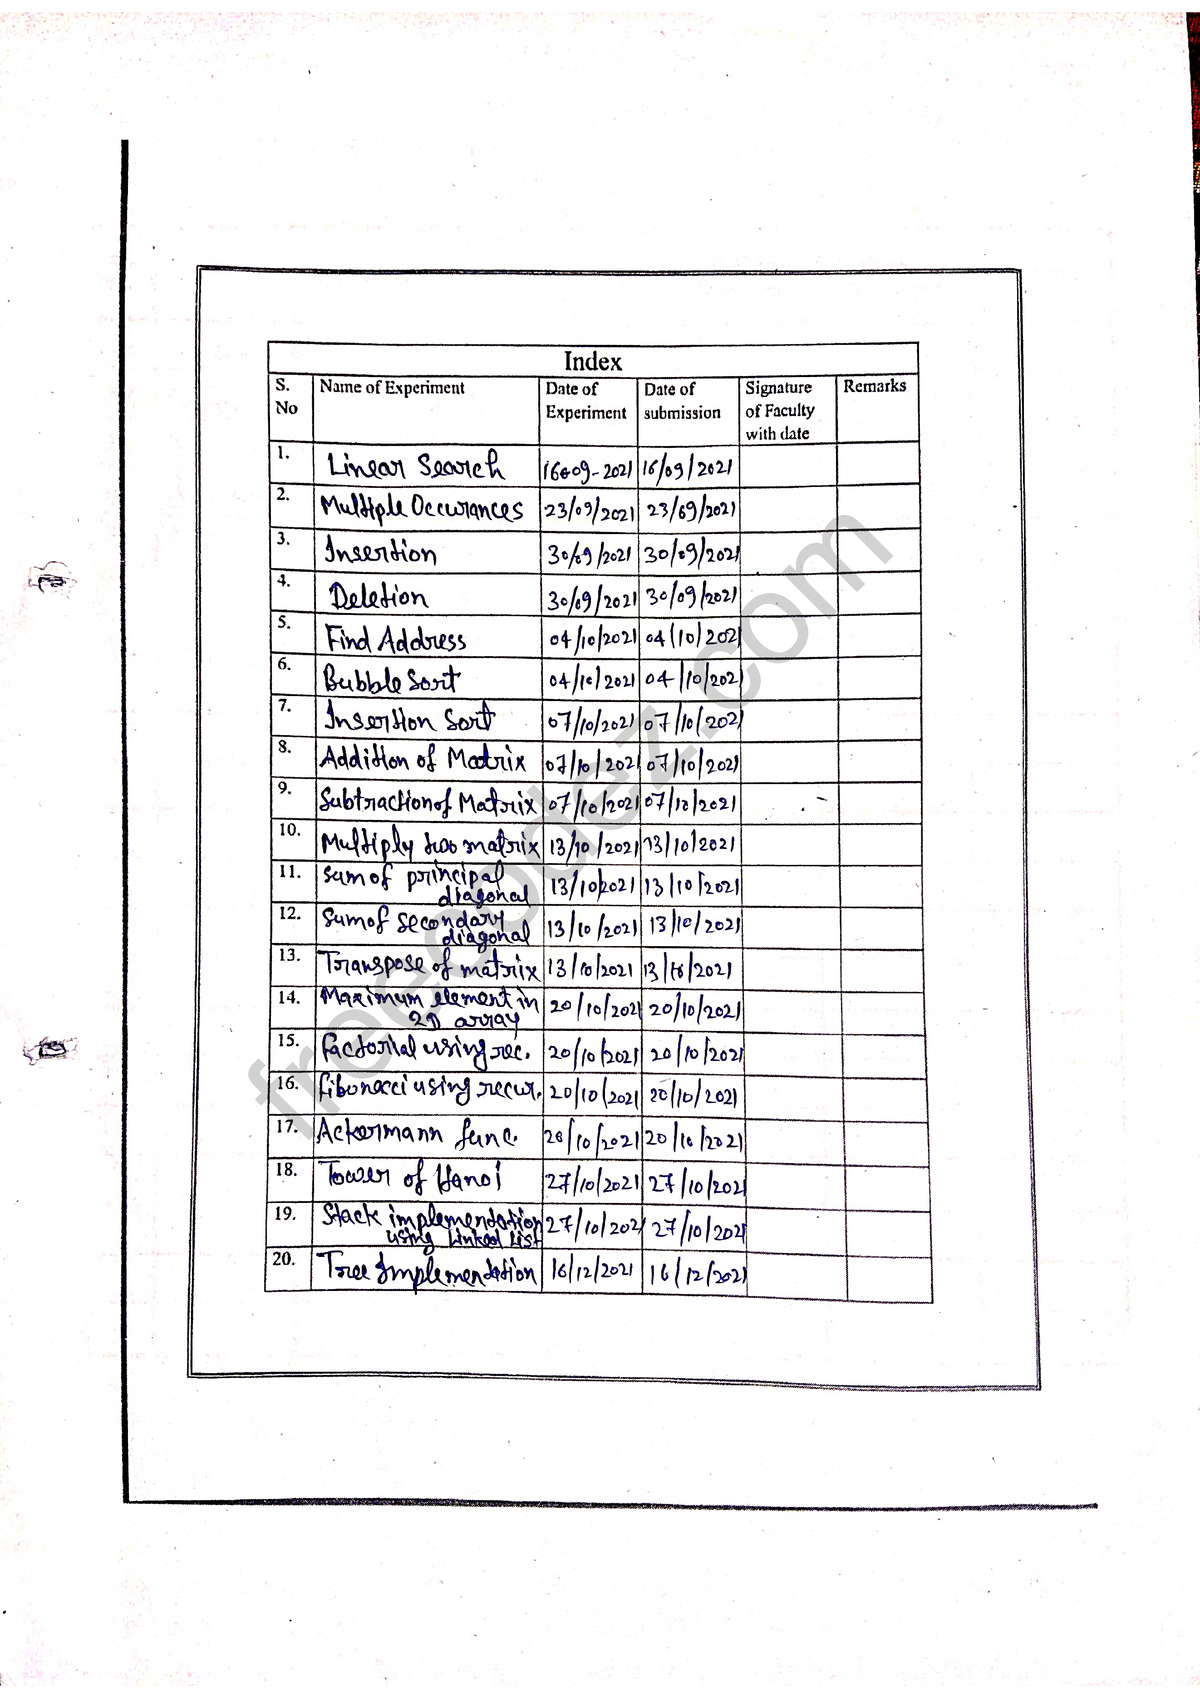 Index
S. No Name of Experiment Date of Experiment Date of submission Signature of Faculty with date Remarks
1. Linear Search 16-09-2021 16/09/2021
2. Multiple Occurances 23/09/2021 23/09/2021
3. Insertion 30/09/2021 30/09/2021
4. Deletion 30/09/2021 30/09/2021
5. Find Address 04/10/2021 04/10/2021
6. Bubble Sort 04/10/2021 04/10/2021
7. Insertion Sort 07/10/2021 07/10/2021
8. Addition of Matrix 07/10/2021 07/10/2021
9. Subtraction of Matrix 07/10/2021 07/10/2021
10. Multiply two matrix 13/10/2021 13/10/2021
11. Sum of principal diagonal 13/10/2021 13/10/2021
12. Sum of secondary diagonal 13/10/2021 13/10/2021
13. Transpose of matrix 13/10/2021 13/10/2021
14. Maximum element in 2D array 20/10/2021 20/10/2021
15. Factorial using rec. 20/10/2021 20/10/2021
16. Fibonacci using recur. 20/10/2021 20/10/2021
17. Ackermann func. 20/10/2021 20/10/2021
18. Tower of Hanoi 27/10/2021 27/10/2021
19. Stack implementation using Linked List 27/10/2021 27/10/2021
20. Tree Implementation 16/12/2021 16/12/2021
freecodez.com